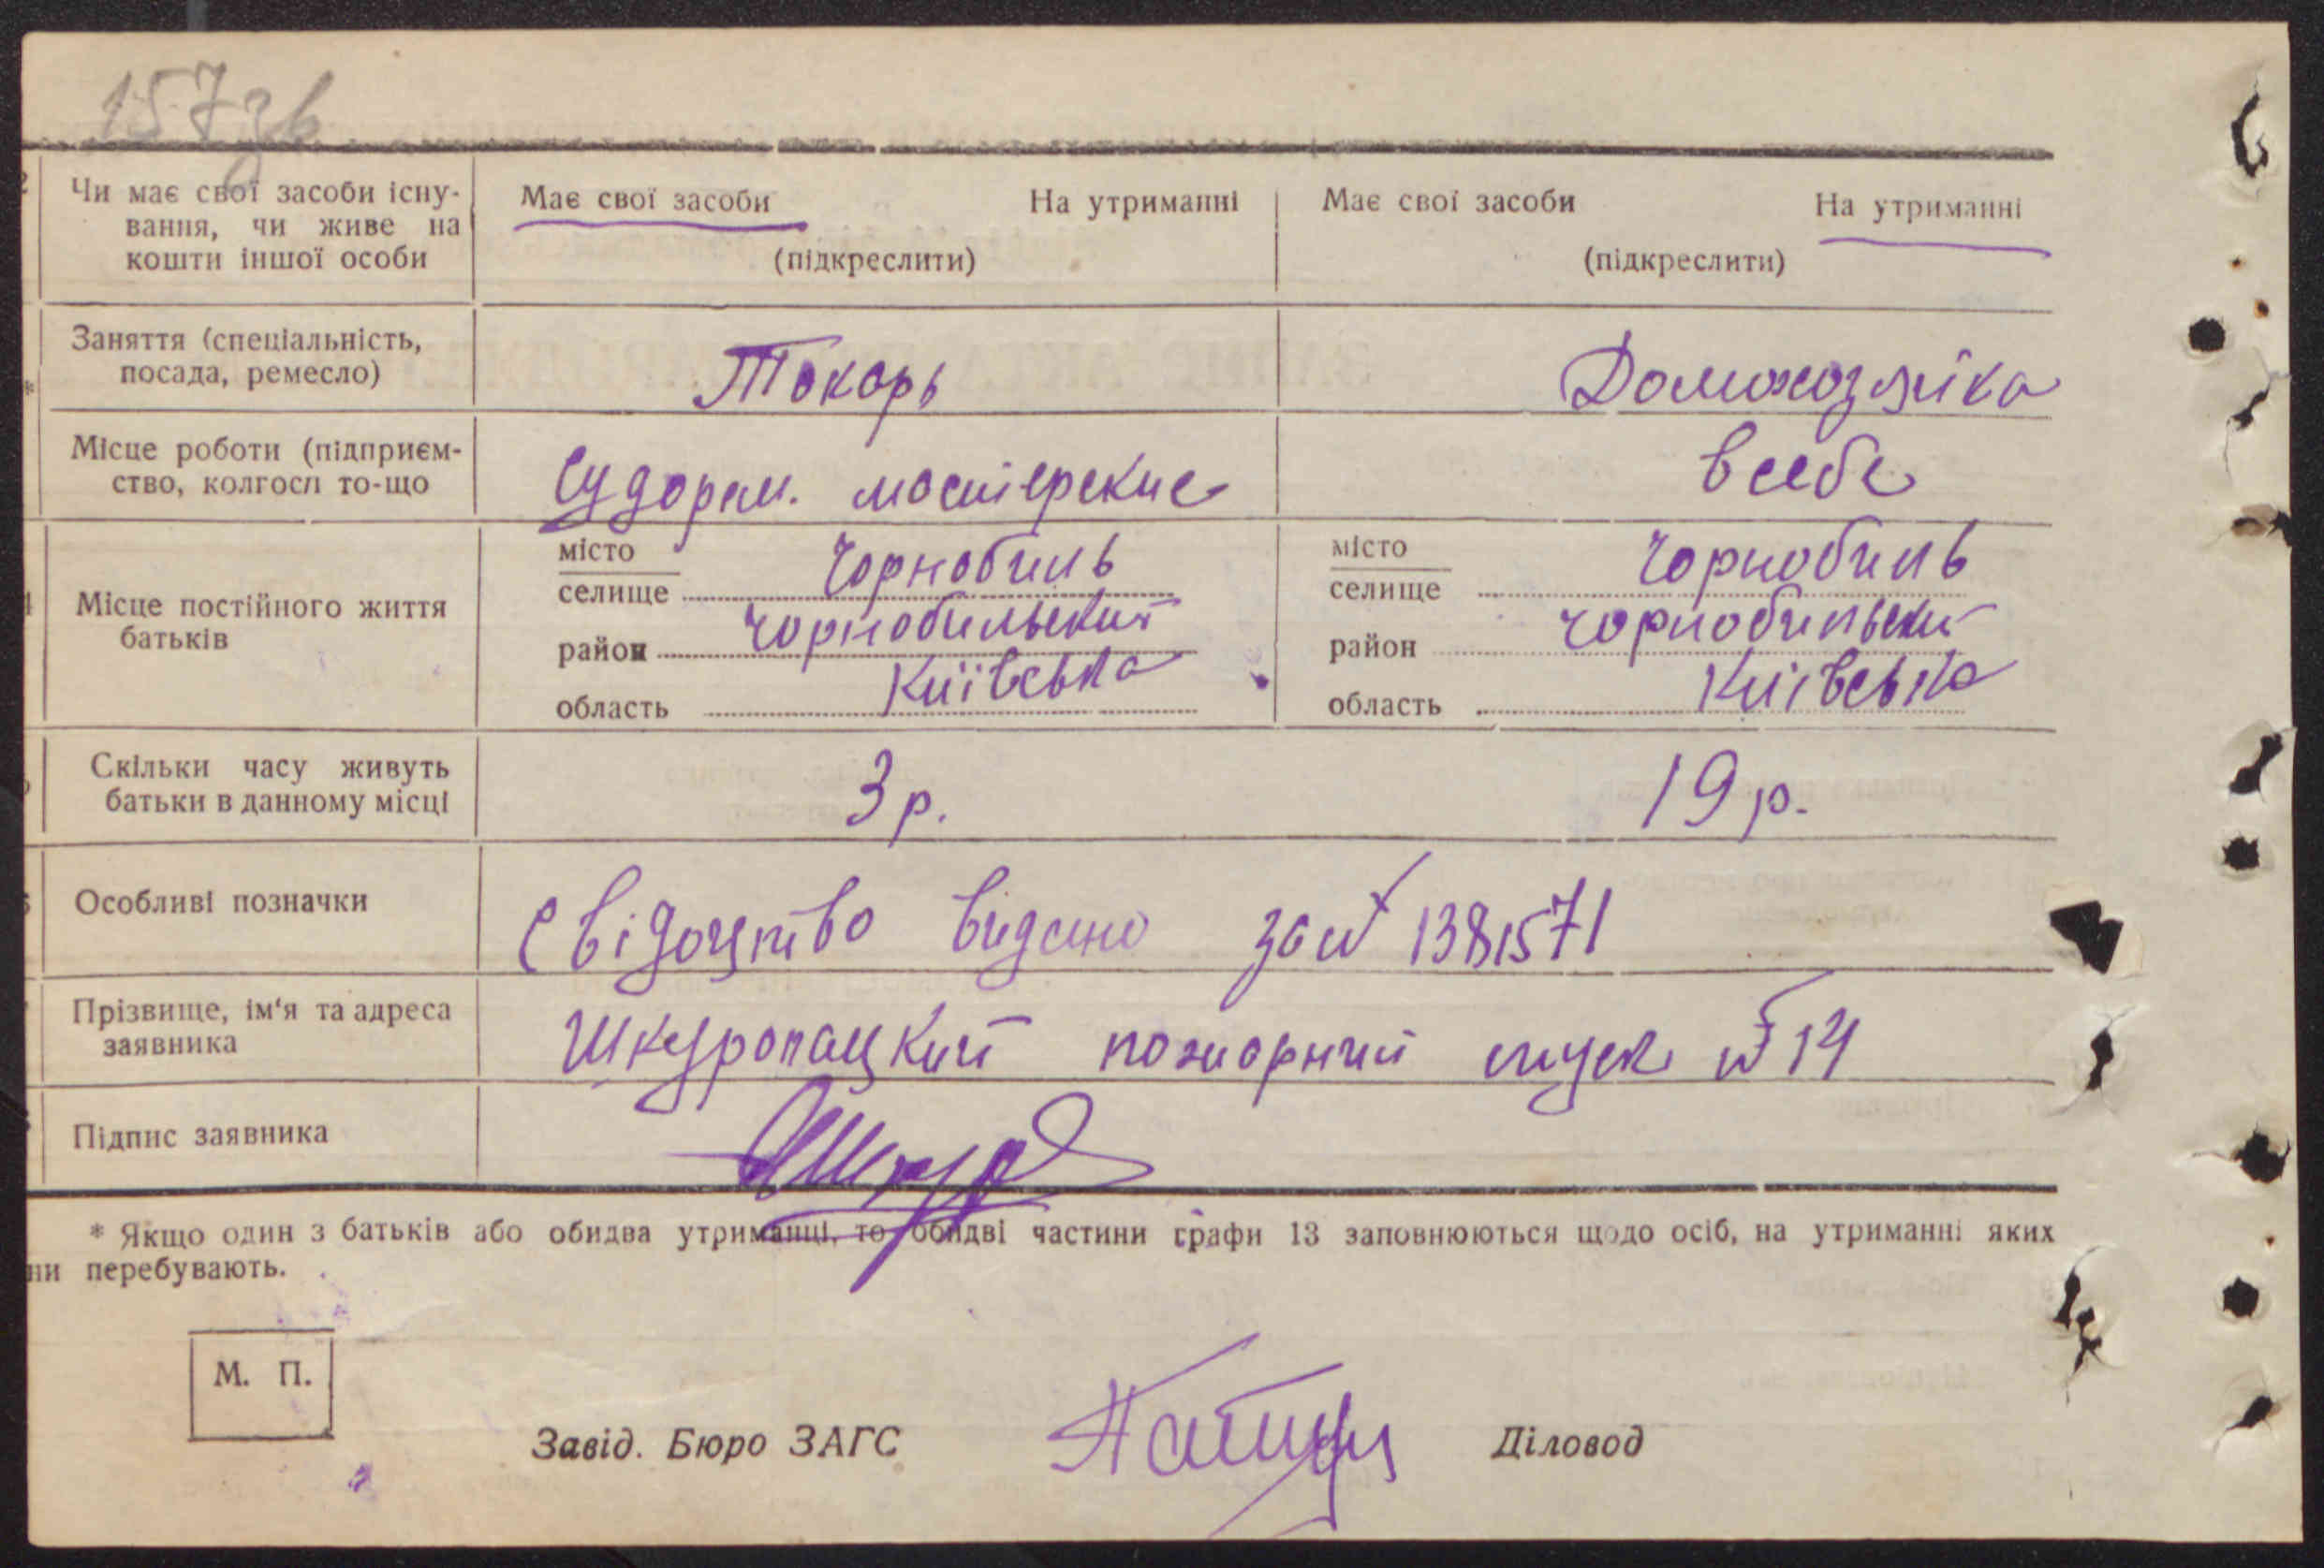 157зв
Чи має свої засоби існу-
вання, чи живе на
кошти іншої особи
Має свої засоби На утриманні
(підкреслити)
Має свої засоби На утриманні
(підкреслити)
Заняття (спеціальність,
посада, ремесло)
Токарь
Домохозяйка
Місце роботи (підприєм-
ство, колгосп то-що
Судорем. мастерские
в себе
Місце постійного життя
батьків
місто
селище Чорнобиль
район Чорнобильский
область Київська
місто
селище Чорнобиль
район Чорнобильский
область Київська
Скільки часу живуть
батьки в данному місці
3 р.
19 р.
Особливі позначки
Свідоцтво видано за № 1381571
Прізвище, ім'я та адреса
заявника
Шкуропацкий пожарний спуск № 14
Підпис заявника
* Якщо один з батьків або обидва утриманці, то обидві частини графи 13 заповнюються щодо осіб, на утриманні яких
ни перебувають.
М. П.
Завід. Бюро ЗАГС
Діловод